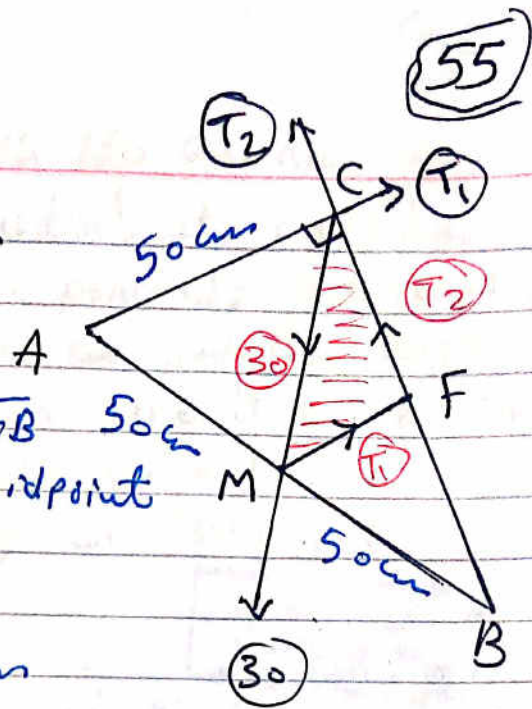 55
T2
C
T1
50 cm
T2
A
30
F
50 cm
B
T1
idpoint
M
50 cm
B
30